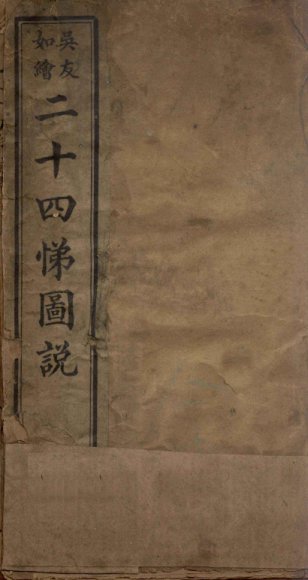 吳友如繪
二十四悌圖說